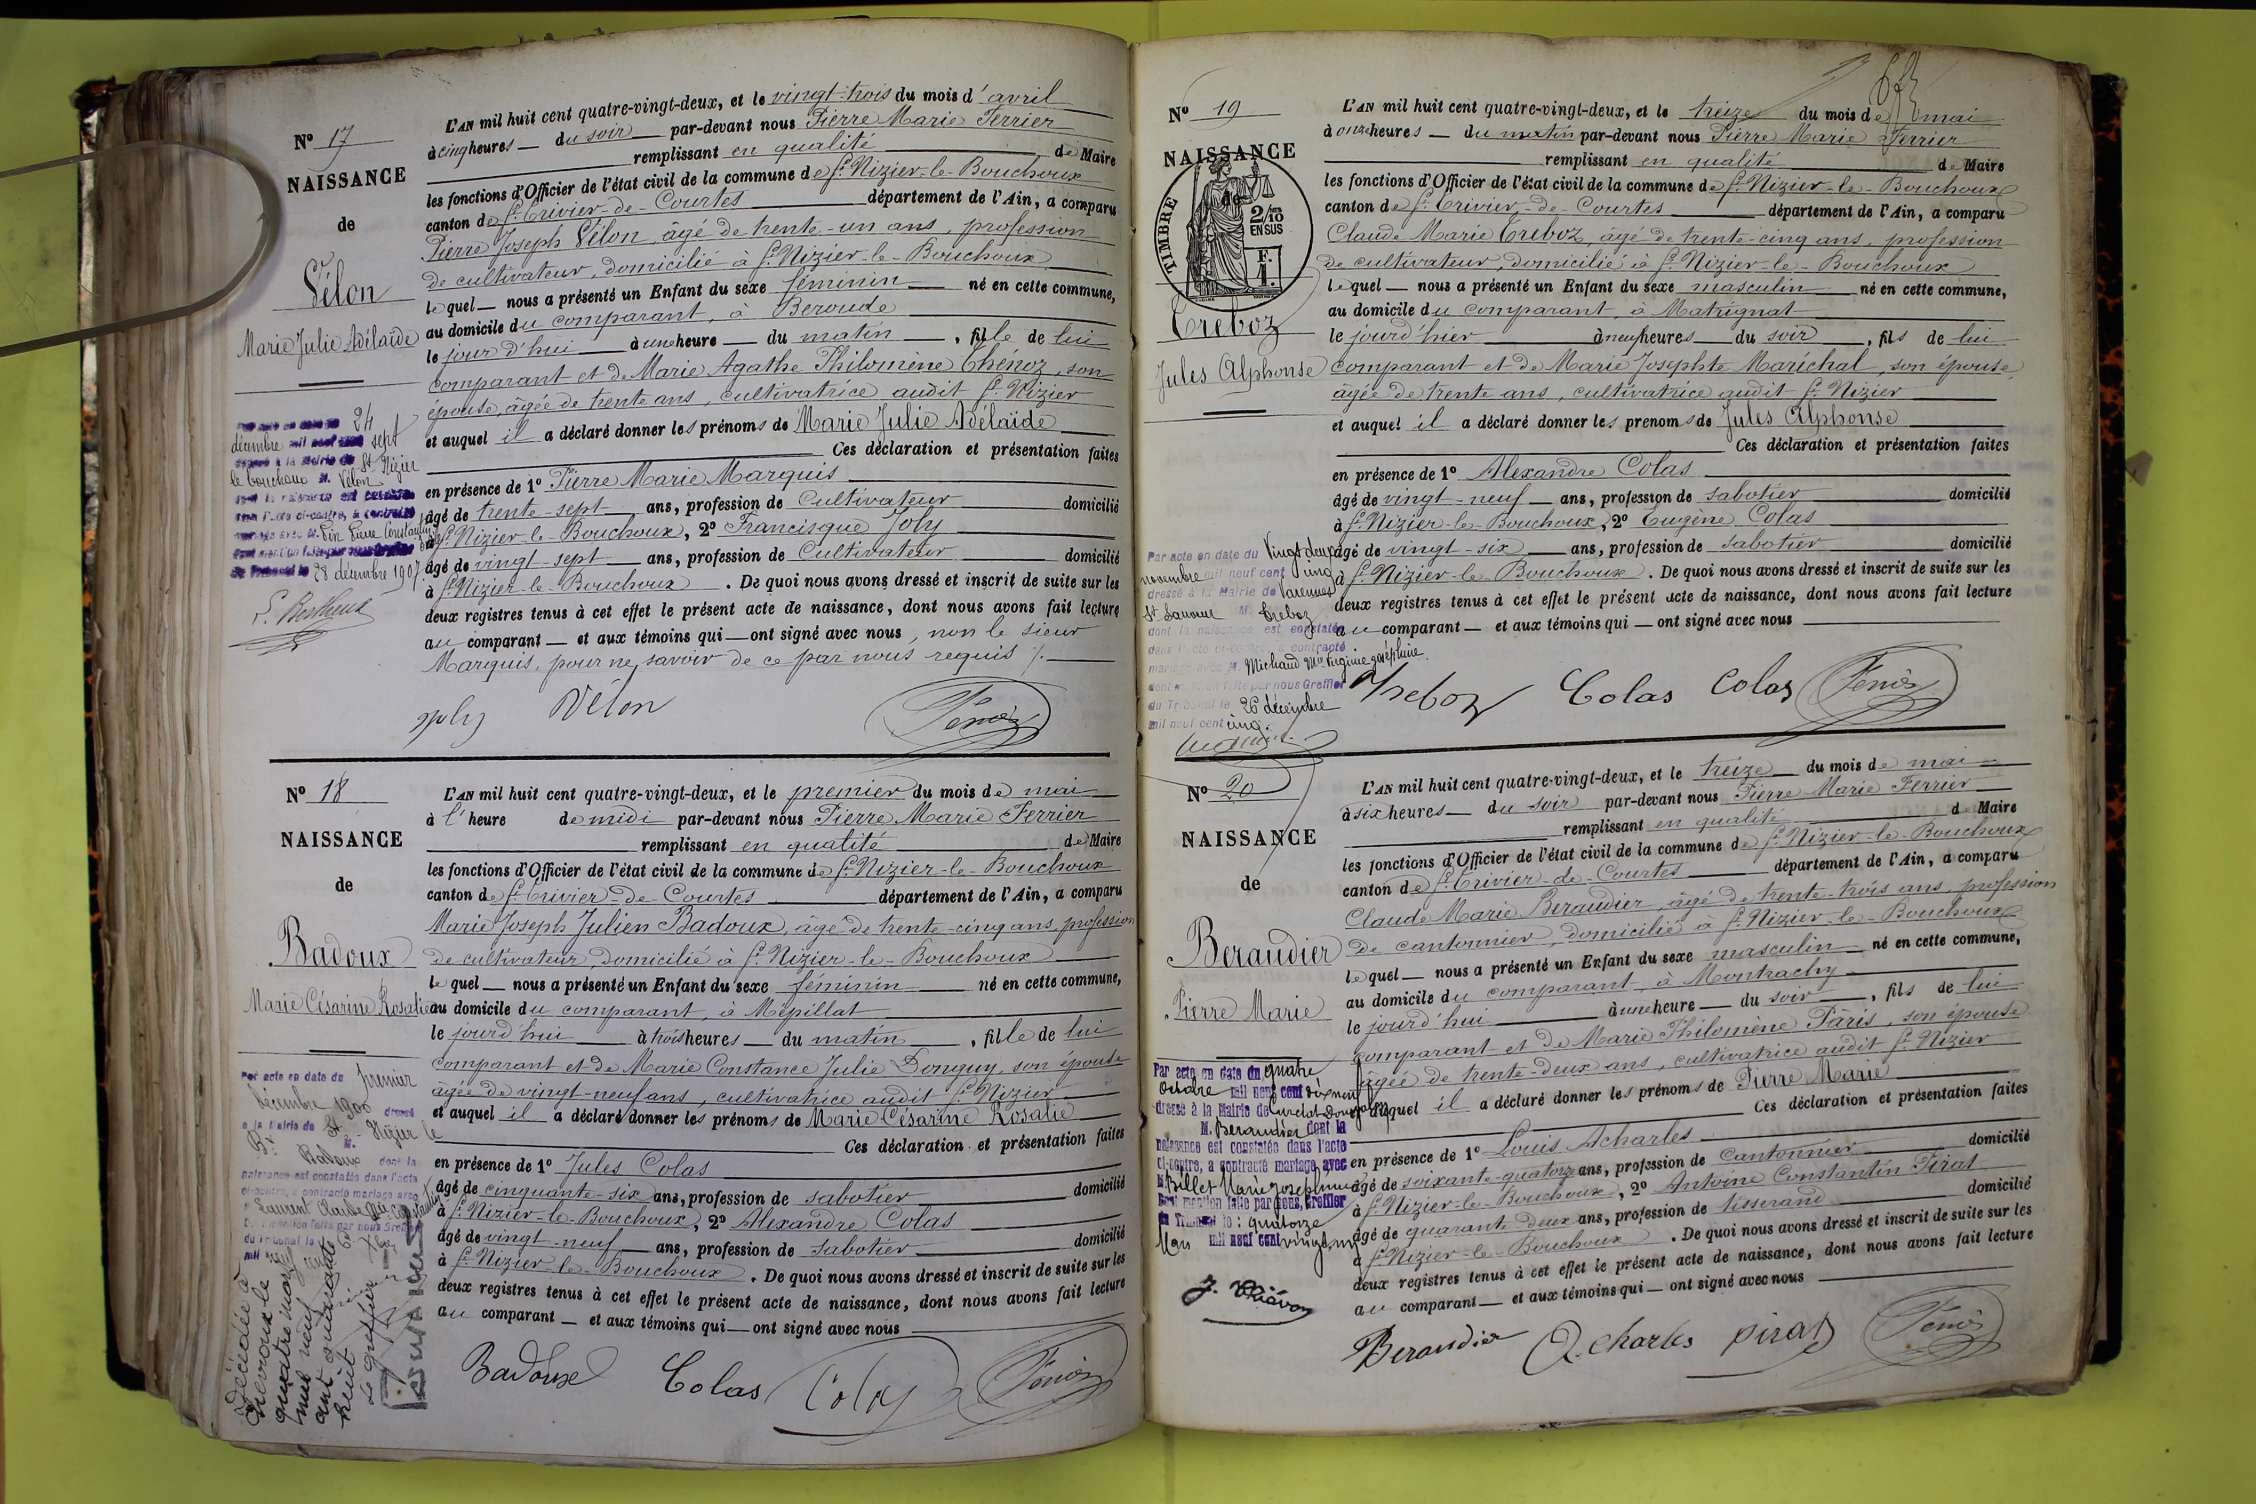 N° 17
NAISSANCE
de
Vélon
Marie Julie Adélaïde
L'AN mil huit cent quatre-vingt-deux, et le vingt-trois du mois d'avril
à cinq heures du soir par-devant nous Pierre Marie Ferrier
remplissant en qualité de Maire
les fonctions d'Officier de l'état civil de la commune de St Nizier-le-Bouchoux
canton de St Trivier-de-Courtes département de l'Ain, a comparu
Pierre Joseph Vélon, âgé de trente-un ans, profession
de cultivateur, domicilié à St Nizier-le-Bouchoux
lequel nous a présenté un Enfant du sexe féminin né en cette commune,
au domicile du comparant, à Beroude
le jourd'hui à une heure du matin, fille de lui
comparant et de Marie Agathe Philomène Chénoz, son
épouse, âgée de trente ans, cultivatrice audit St Nizier
et auquel il a déclaré donner les prénoms de Marie Julie Adélaïde
Ces déclaration et présentation faites
en présence de 1° Pierre Marie Marquis
âgé de trente-sept ans, profession de Cultivateur domicilié
à St Nizier-le-Bouchoux, 2° Francisque Joly
âgé de vingt-sept ans, profession de Cultivateur domicilié
à St Nizier-le-Bouchoux. De quoi nous avons dressé et inscrit de suite sur les
deux registres tenus à cet effet le présent acte de naissance, dont nous avons fait lecture
au comparant et aux témoins qui ont signé avec nous, non le sieur
Marquis, pour ne savoir de ce par nous requis %.
24
décembre mil neuf cent sept
à la Mairie de St Nizier
le bouchoux M. Vélon
dont la naissance est constatée
dans l'acte ci-contre, a contracté
mariage avec M. Pin Pierre Constantin
28 décembre 1907
Joly Vélon
N° 18
NAISSANCE
de
Badoux
Marie Césarine Rosalie
L'AN mil huit cent quatre-vingt-deux, et le premier du mois de mai
à l'heure de midi par-devant nous Pierre Marie Ferrier
remplissant en qualité de Maire
les fonctions d'Officier de l'état civil de la commune de St Nizier-le-Bouchoux
canton de St Trivier-de-Courtes département de l'Ain, a comparu
Marie Joseph Julien Badoux, âgé de trente-cinq ans, profession
de cultivateur, domicilié à St Nizier-le-Bouchoux
lequel nous a présenté un Enfant du sexe féminin né en cette commune,
au domicile du comparant, à Mépillat
le jourd'hui à trois heures du matin, fille de lui
comparant et de Marie Constance Julie Donguy, son épouse
âgée de vingt-neuf ans, cultivatrice audit St Nizier
et auquel il a déclaré donner les prénoms de Marie Césarine Rosalie
Ces déclaration et présentation faites
en présence de 1° Jules Colas
âgé de cinquante-six ans, profession de sabotier domicilié
à St Nizier-le-Bouchoux, 2° Alexandre Colas
âgé de vingt-neuf ans, profession de sabotier domicilié
à St Nizier-le-Bouchoux. De quoi nous avons dressé et inscrit de suite sur les
deux registres tenus à cet effet le présent acte de naissance, dont nous avons fait lecture
au comparant et aux témoins qui ont signé avec nous
Par acte en date du premier
décembre 1900 dressé
à la Mairie de St Nizier le
Bx M. Badoux dont la
naissance est constatée dans l'acte
ci-contre, a contracté mariage avec
Laurent Claude
Décédée à
Chevroux le
quatre mars
mil neuf
cent soixante
huit
Le greffier
Badoux Colas Colas
N° 19
NAISSANCE
de
TIMBRE
2/10 EN SUS
F. 1.
Treboz
Jules Alphonse
L'AN mil huit cent quatre-vingt-deux, et le treize du mois de mai
à onze heures du matin par-devant nous Pierre Marie Ferrier
remplissant en qualité de Maire
les fonctions d'Officier de l'état civil de la commune de St Nizier-le-Bouchoux
canton de St Trivier-de-Courtes département de l'Ain, a comparu
Claude Marie Treboz, âgé de trente-cinq ans, profession
de cultivateur, domicilié à St Nizier-le-Bouchoux
lequel nous a présenté un Enfant du sexe masculin né en cette commune,
au domicile du comparant, à Matrignat
le jourd'hier à neuf heures du soir, fils de lui
comparant et de Marie Josephte Maréchal, son épouse,
âgée de trente ans, cultivatrice audit St Nizier
et auquel il a déclaré donner les prenoms de Jules Alphonse
Ces déclaration et présentation faites
en présence de 1° Alexandre Colas
âgé de vingt-neuf ans, profession de sabotier domicilié
à St Nizier-le-Bouchoux, 2° Eugène Colas
âgé de vingt-six ans, profession de sabotier domicilié
à St Nizier-le-Bouchoux. De quoi nous avons dressé et inscrit de suite sur les
deux registres tenus à cet effet le présent acte de naissance, dont nous avons fait lecture
au comparant et aux témoins qui ont signé avec nous
Par acte en date du vingt deux
novembre mil neuf cent cinq
dressé à la Mairie de Varennes
St Sauveur M. Treboz
dont la naissance est constatée
dans l'acte ci-contre, a contracté
mariage avec M. Michaud Mie Virginie Joséphine
dont mention faite par nous Greffier
du Tribunal le 26 décembre
mil neuf cent cinq.
Treboz Colas Colas
N° 20
NAISSANCE
de
Beraudier
Pierre Marie
L'AN mil huit cent quatre-vingt-deux, et le treize du mois de mai
à six heures du soir par-devant nous Pierre Marie Ferrier
remplissant en qualité de Maire
les fonctions d'Officier de l'état civil de la commune de St Nizier-le-Bouchoux
canton de St Trivier-de-Courtes département de l'Ain, a comparu
Claude Marie Beraudier, âgé de trente-trois ans, profession
de cantonnier, domicilié à St Nizier-le-Bouchoux
lequel nous a présenté un Enfant du sexe masculin né en cette commune,
au domicile du comparant, à Montrachy
le jourd'hui à une heure du soir, fils de lui
comparant et de Marie Philomène Pâris, son épouse
âgée de trente-deux ans, cultivatrice audit St Nizier
et auquel il a déclaré donner les prénoms de Pierre Marie
Ces déclaration et présentation faites
en présence de 1° Louis Acharles
âgé de soixante-quatorze ans, profession de cantonnier domicilié
à St Nizier-le-Bouchoux, 2° Antoine Constantin Pirat
âgé de quarante deux ans, profession de tisserand domicilié
à St Nizier-le-Bouchoux. De quoi nous avons dressé et inscrit de suite sur les
deux registres tenus à cet effet le présent acte de naissance, dont nous avons fait lecture
au comparant et aux témoins qui ont signé avec nous
Par acte en date du quatre
Octobre mil neuf cent dix neuf
dressé à la Mairie de Curciat Dongalon
M. Beraudier dont la
naissance est constatée dans l'acte
ci-contre, a contracté mariage avec
Billet Marie Josephine
Dont mention faite par nous, Greffier
du Tribunal le : quatorze
Mars mil neuf cent vingt un
Beraudier Acharles Pirat